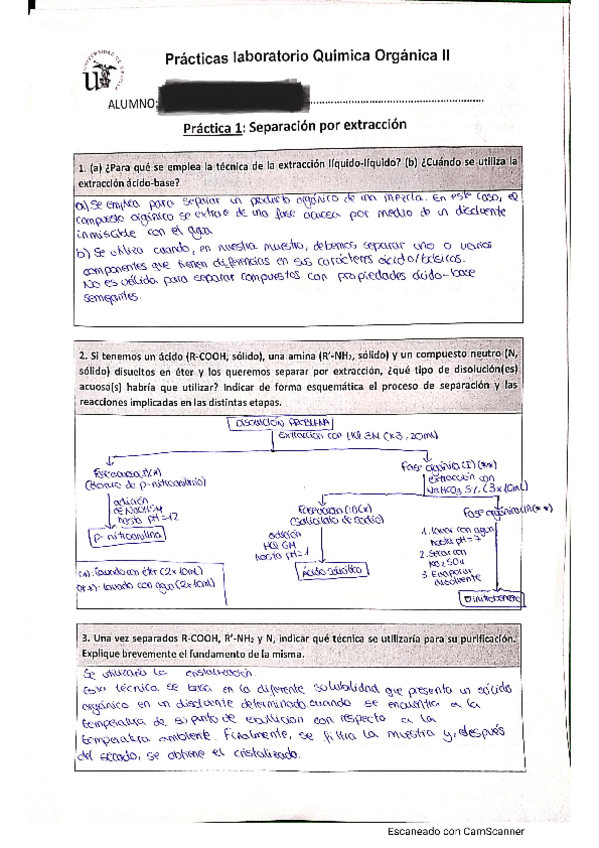 Prácticas laboratorio Química Orgánica II
ALUMNO:
Práctica 1: Separación por extracción
1. (a) ¿Para qué se emplea la técnica de la extracción líquido-líquido? (b) ¿Cuándo se utiliza la
extracción ácido-base?
a) Se emplea para separar un producto orgánico de una mezcla. En este caso, el
compuesto orgánico se extrae de una fase acuosa por medio de un disolvente
inmiscible con el agua
b) Se utiliza cuando, en nuestra muestra, debemos separar uno o varios
componentes que tienen diferencias en sus carácteres ácido/básicos.
No es válida para separar compuestos con propiedades ácido-base
semejantes.
2. Si tenemos un ácido (R-COOH, sólido), una amina (R'-NH₂, sólido) y un compuesto neutro (N,
sólido) disueltos en éter y los queremos separar por extracción, ¿qué tipo de disolución(es)
acuosa(s) habría que utilizar? Indicar de forma esquemática el proceso de separación y las
reacciones implicadas en las distintas etapas.
DISOLUCIÓN PROBLEMA
Extracción con HCl 3N (x3, 20mL)
Fase acuosa
p-nitroanilina
adición
de NaOH 5M
hasta pH=12
p-nitroanilina
Fase orgánica (I) (**)
extracción con
NaHCO3 5% (3x10mL)
(salicilato de sodio)
adición
HCl 6M
hasta pH=1
Ácido salicílico
Fase orgánica
1. lavar con agua
hasta pH=7
2. Secar con
Na2SO4
3. Evaporar
disolvente
(*): lavado con éter (2x10mL)
(**): lavado con agua (2x10mL)
3. Una vez separados R-COOH, R'-NH₂ y N, indicar qué técnica se utilizaría para su purificación.
Explique brevemente el fundamento de la misma.
Se utilizaría la cristalización.
Esta técnica se basa en la diferente solubilidad que presenta un sólido
orgánico en un disolvente determinado cuando se encuentra a la
temperatura de su punto de ebullición con respecto a la
temperatura ambiente. Finalmente, se filtra la muestra y, después
del secado, se obtiene el cristalizado.
Escaneado con CamScanner